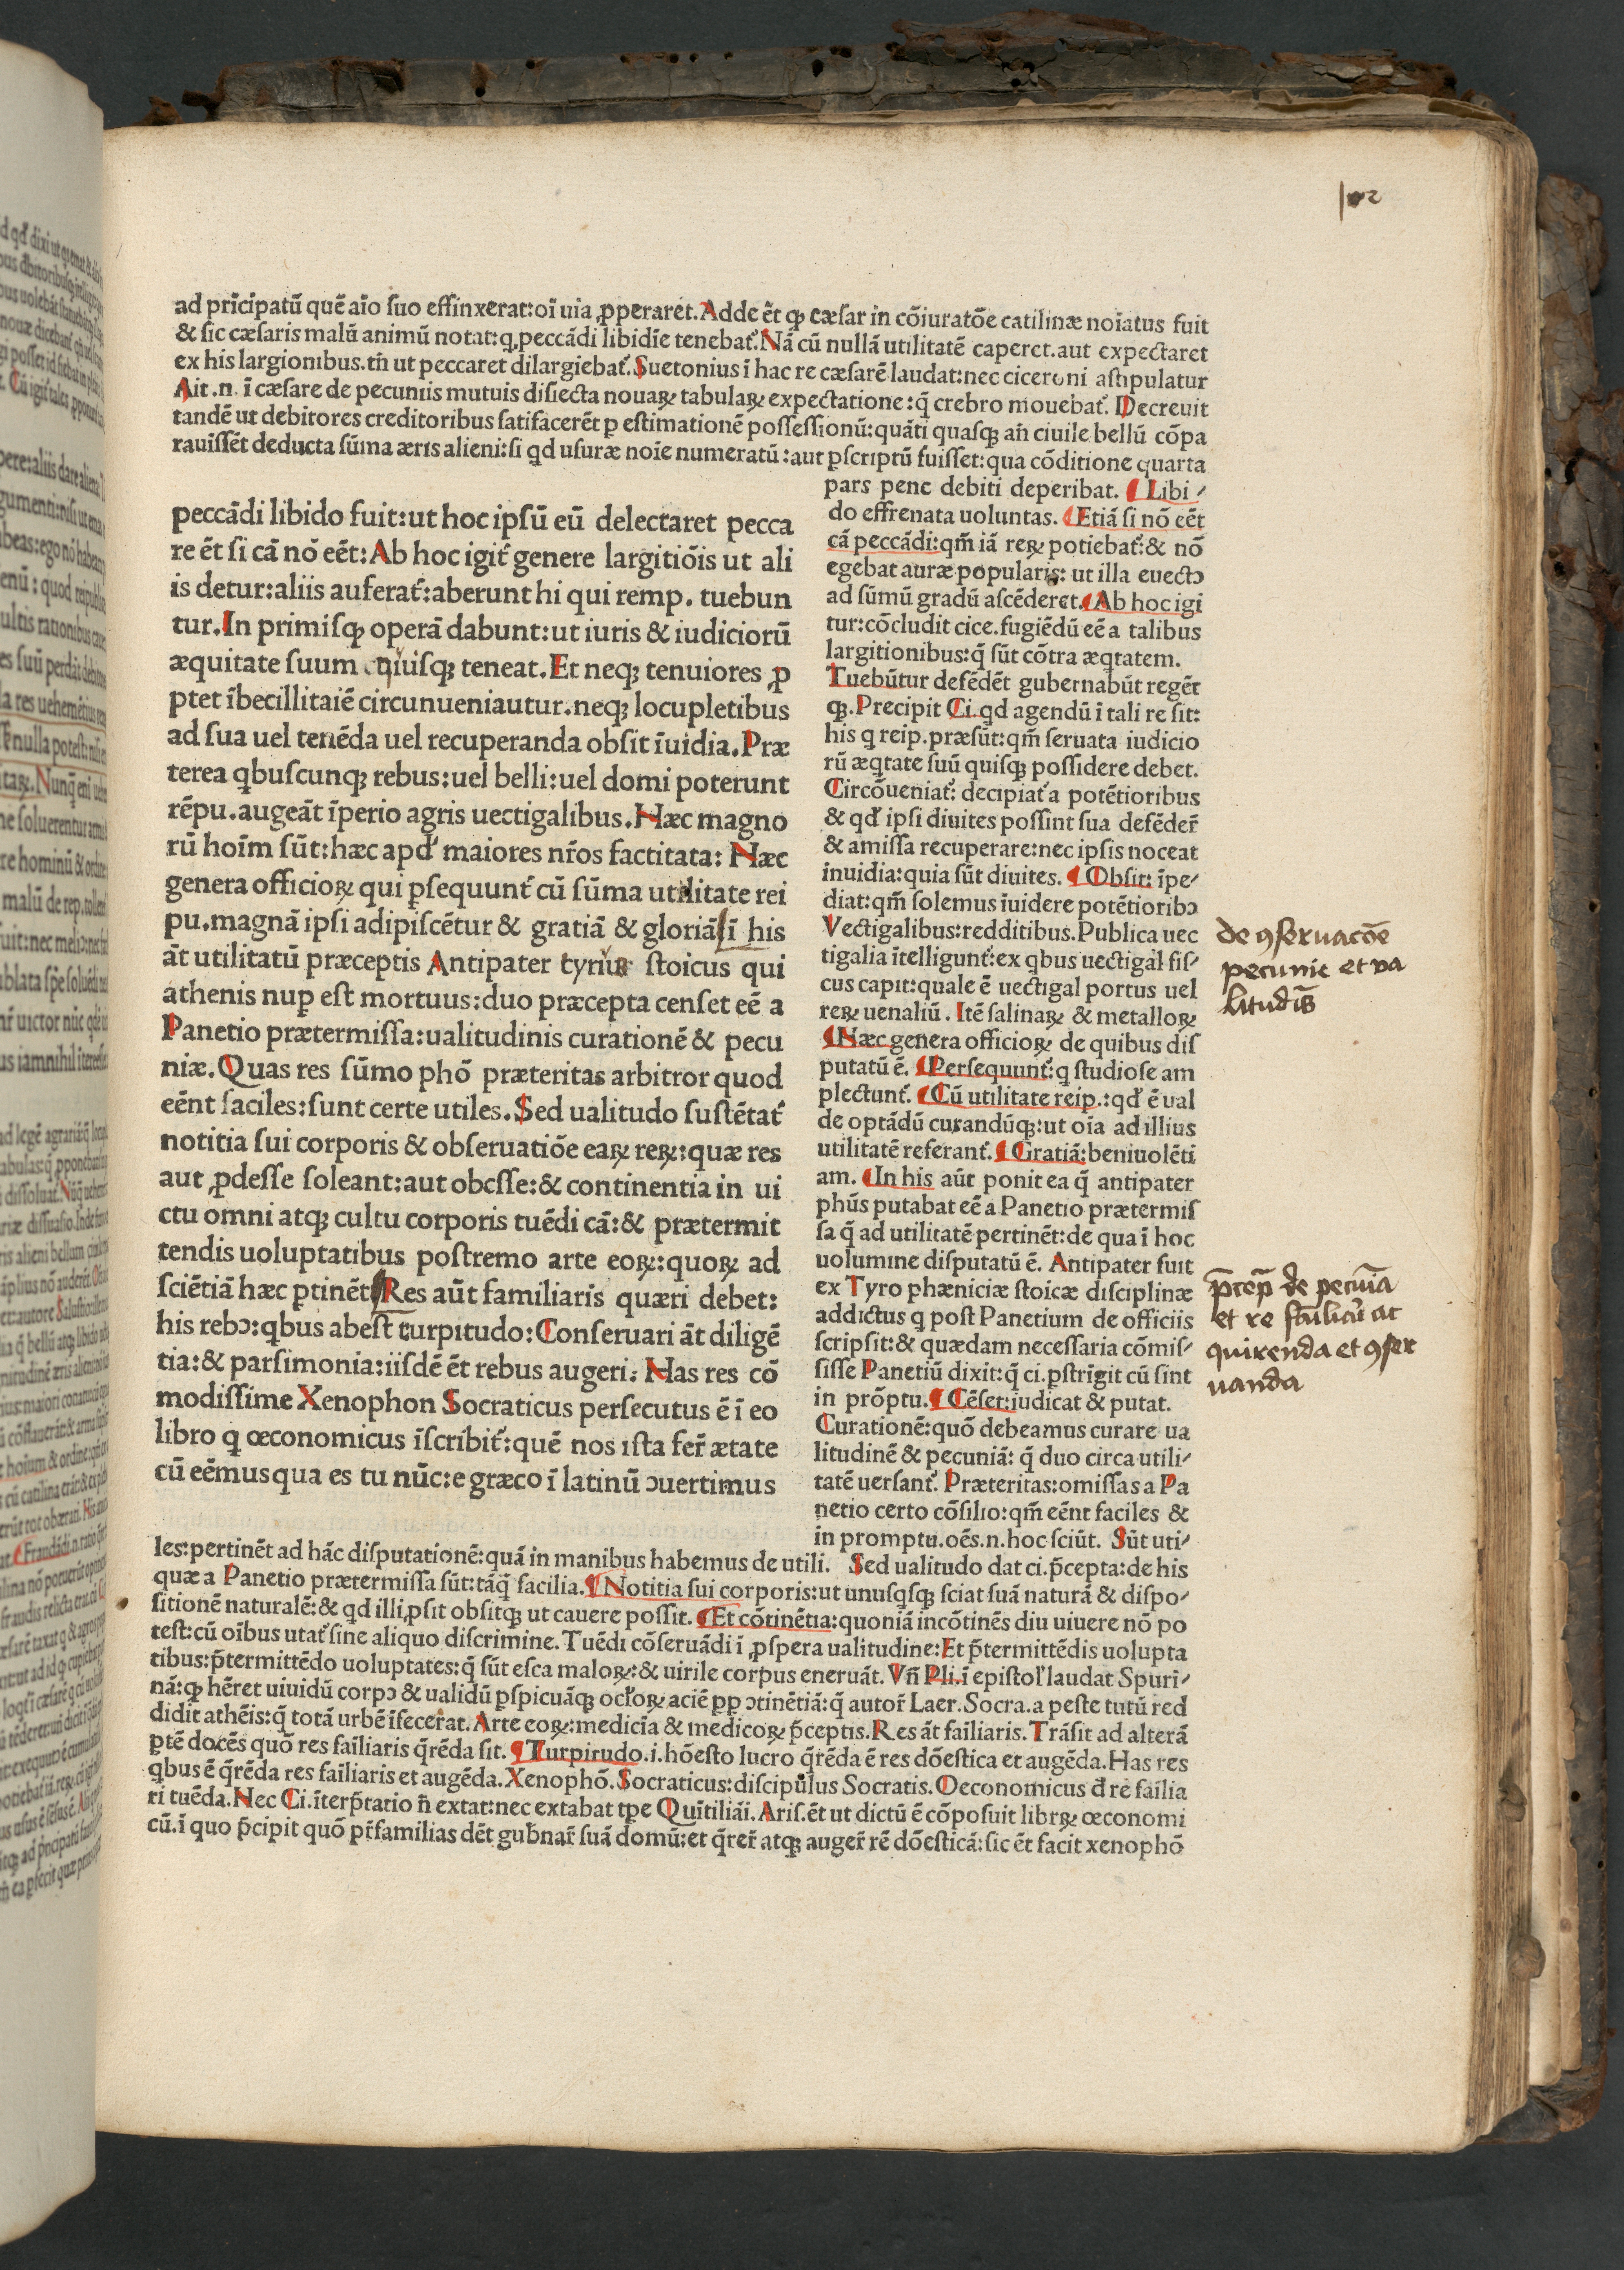 102
ad prĩcipatũ quẽ aĩo suo effinxerat:oĩ uia ꝓperaret. Adde ẽt ꝙ cæsar in cõiuratõe catilinæ noĩatus fuit
& sic cæsaris malũ animũ notat:q peccãdi libidĩe tenebat᷑. Nã cũ nullã utilitatẽ caperet.aut expectaret
ex his largionibus.tñ ut peccaret dilargiebat᷑. Suetonius ĩ hac re cæsarẽ laudat:nec ciceroni astipulatur
Ait .n. ĩ cæsare de pecuniis mutuis disiecta nouaꝝ tabulaꝝ expectatione:q̃ crebro mouebat᷑. Decreuit
tandẽ ut debitores creditoribus satifacerẽt p estimationẽ possessionũ:quãti quasqꝫ añ ciuile bellũ cõpa
rauissẽt deducta sũma æris alieni:si qd usuræ noĩe numeratũ:aut ꝑscriptũ fuisset:qua cõditione quarta
peccãdi libido fuit:ut hoc ipsũ eũ delectaret pecca
re ẽt si cã nõ eẽt:Ab hoc igit᷑ genere largitiõis ut ali
is detur:aliis auferat᷑:aberunt hi qui remp. tuebun
tur.In primisqꝫ operã dabunt:ut iuris & iudiciorũ
æquitate suum cuiusqꝫ teneat.Et neqꝫ tenuiores ꝓ
ptet ĩbecillitaiẽ circunueniautur.neqꝫ locupletibus
ad sua uel tenẽda uel recuperanda obsit ĩuidia.Præ
terea qbuscunqꝫ rebus:uel belli:uel domi poterunt
rẽpu.augeãt ĩperio agris uectigalibus.Hæc magno
rũ hoĩm sũt:hæc apd᷑ maiores nr̃os factitata: Hæc
genera officioꝝ qui ꝑsequunt᷑ cũ sũma utilitate rei
pu.magnã ipsi adipiscẽtur & gratiã & gloriã ĩ his
ãt utilitatũ præceptis Antipater tyrius stoicus qui
athenis nuꝑ est mortuus:duo præcepta censet eẽ a
Panetio prætermissa:ualitudinis curationẽ & pecu
niæ.Quas res sũmo phõ præteritas arbitror quod
eẽnt faciles:sunt certe utiles.Sed ualitudo sustẽtat᷑
notitia sui corporis & obseruatiõe eaꝝ reꝝ:quæ res
aut ꝓdesse soleant:aut obesse:& continentia in ui
ctu omni atqꝫ cultu corporis tuẽdi cã:& prætermit
tendis uoluptatibus postremo arte eoꝝ:quoꝝ ad
sciẽtiã hæc ꝑtinẽt Res aũt familiaris quæri debet:
his rebꝯ:qbus abest turpitudo:Conseruari ãt diligẽ
tia:& parsimonia:iisdẽ ẽt rebus augeri. Has res cõ
modissime Xenophon Socraticus persecutus ẽ ĩ eo
libro q œconomicus ĩscribit᷑:quẽ nos ista fer̃ ætate
cũ eẽmus qua es tu nũc:e græco ĩ latinũ ꝯuertimus
pars pene debiti deperibat. ¶ Libi-
do effrenata uoluntas. ¶ Etiã si nõ eẽt
cã peccãdi:qm̃ iã reꝝ potiebat᷑:& nõ
egebat auræ popularis: ut illa euectꝯ
ad sũmũ gradũ ascẽderet. ¶ Ab hoc igi
tur:cõcludit cice.fugiẽdũ eẽ a talibus
largitionibus:q̃ sũt cõtra æqtatem.
Tuebũtur defẽdẽt gubernabũt regẽt
qꝫ.Precipit Ci.qd agendũ ĩ tali re sit:
his q reip.præsũt:qm̃ seruata iudicio
rũ æqtate suũ quisqꝫ possidere debet.
Circõueniat᷑: decipiat᷑a potẽtioribus
& qd᷑ ipsi diuites possint sua defẽder̃
& amissa recuperare:nec ipsis noceat
inuidia:quia sũt diuites. ¶ Obsit: ĩpe-
diat:qm̃ solemus ĩuidere potẽtioribꝯ
Vectigalibus:redditibus.Publica uec
tigalia ĩtelligunt᷑:ex qbus uectigal fis-
cus capit:quale ẽ uectigal portus uel
reꝝ uenaliũ. Itẽ salinaꝝ & metalloꝝ
¶ Hæc genera officioꝝ de quibus dis
putatũ ẽ. ¶ Persequunt᷑:q studiose am
plectunt᷑. ¶ Cũ utilitate reip.:qd᷑ ẽ ual
de optãdũ curandũqꝫ:ut oĩa ad illius
utilitatẽ referant᷑. ¶ Gratiã:beniuolẽti
am. ¶ In his aũt ponit ea q̃ antipater
phũs putabat eẽ a Panetio prætermis
sa q̃ ad utilitatẽ pertinẽt:de qua ĩ hoc
uolumine disputatũ ẽ. Antipater fuit
ex Tyro phæniciæ stoicæ disciplinæ
addictus q post Panetium de officiis
scripsit:& quædam necessaria cõmis-
sisse Panetiũ dixit:q̃ ci.ꝑstrĩgit cũ sint
in prõptu. ¶ Cẽset:iudicat & putat.
Curationẽ:quõ debeamus curare ua
litudinẽ & pecuniã: q̃ duo circa utili-
tatẽ uersant᷑. Præteritas:omissas a Pa
netio certo cõsilio:qm̃ eẽnt faciles &
in promptu.oẽs.n.hoc sciũt. Sũt uti-
les:pertinẽt ad hãc disputationẽ:quã in manibus habemus de utili. Sed ualitudo dat ci.p̃cepta:de his
quæ a Panetio prætermissa sũt:tãq̃ facilia. ¶ Notitia sui corporis:ut unusqsqꝫ sciat suã naturã & dispo-
sitionẽ naturalẽ:& qd illi ꝓsit obsitqꝫ ut cauere possit. ¶ Et cõtinẽtia:quoniã incõtinẽs diu uiuere nõ po
test:cũ oĩbus utat᷑ sine aliquo discrimine. Tuẽdi cõseruãdi ĩ ꝓspera ualitudine:Et p̃termittẽdis uolupta
tibus:p̃termittẽdo uoluptates:q̃ sũt esca maloꝝ:& uirile corpus eneruãt. Vñ Pli.ĩ epistol᷑ laudat Spuri-
nã:ꝙ hẽret uiuidũ corpꝯ & ualidũ ꝑspicuãqꝫ ocl᷑oꝝ aciẽ ꝓp ꝯtinẽtiã:q̃ autor̃ Laer.Socra.a peste tutũ red
didit athẽis:q̃ totã urbẽ ĩfecerat. Arte eoꝝ:medicĩa & medicoꝝ p̃ceptis.Res ãt faĩliaris. Trãsit ad alterã
ꝑtẽ docẽs quõ res faĩliaris q̃rẽda sit. ¶ Turpitudo.i.hõesto lucro q̃rẽda ẽ res dõestica et augẽda.Has res
qbus ẽ q̃rẽda res faĩliaris et augẽda.Xenophõ.Socraticus:discipulus Socratis.Oeconomicus d̃ re faĩlia
ri tuẽda.Nec Ci.ĩterp̃tatio ñ extat:nec extabat tꝑe Quĩtiliãi.Aris.ẽt ut dictũ ẽ cõposuit librꝝ œconomi
cũ.ĩ quo p̃cipit quõ pr̃familias dẽt gub̃nar̃ suã domũ:et q̃rer̃ atqꝫ auger̃ rẽ dõesticã:sic ẽt facit xenophõ
de ꝯseruacõe
pecunie et va
litudĩs
p̃cep̃ de pecuĩa
et re fa᷑liari ac
quirenda et ꝯser
uanda